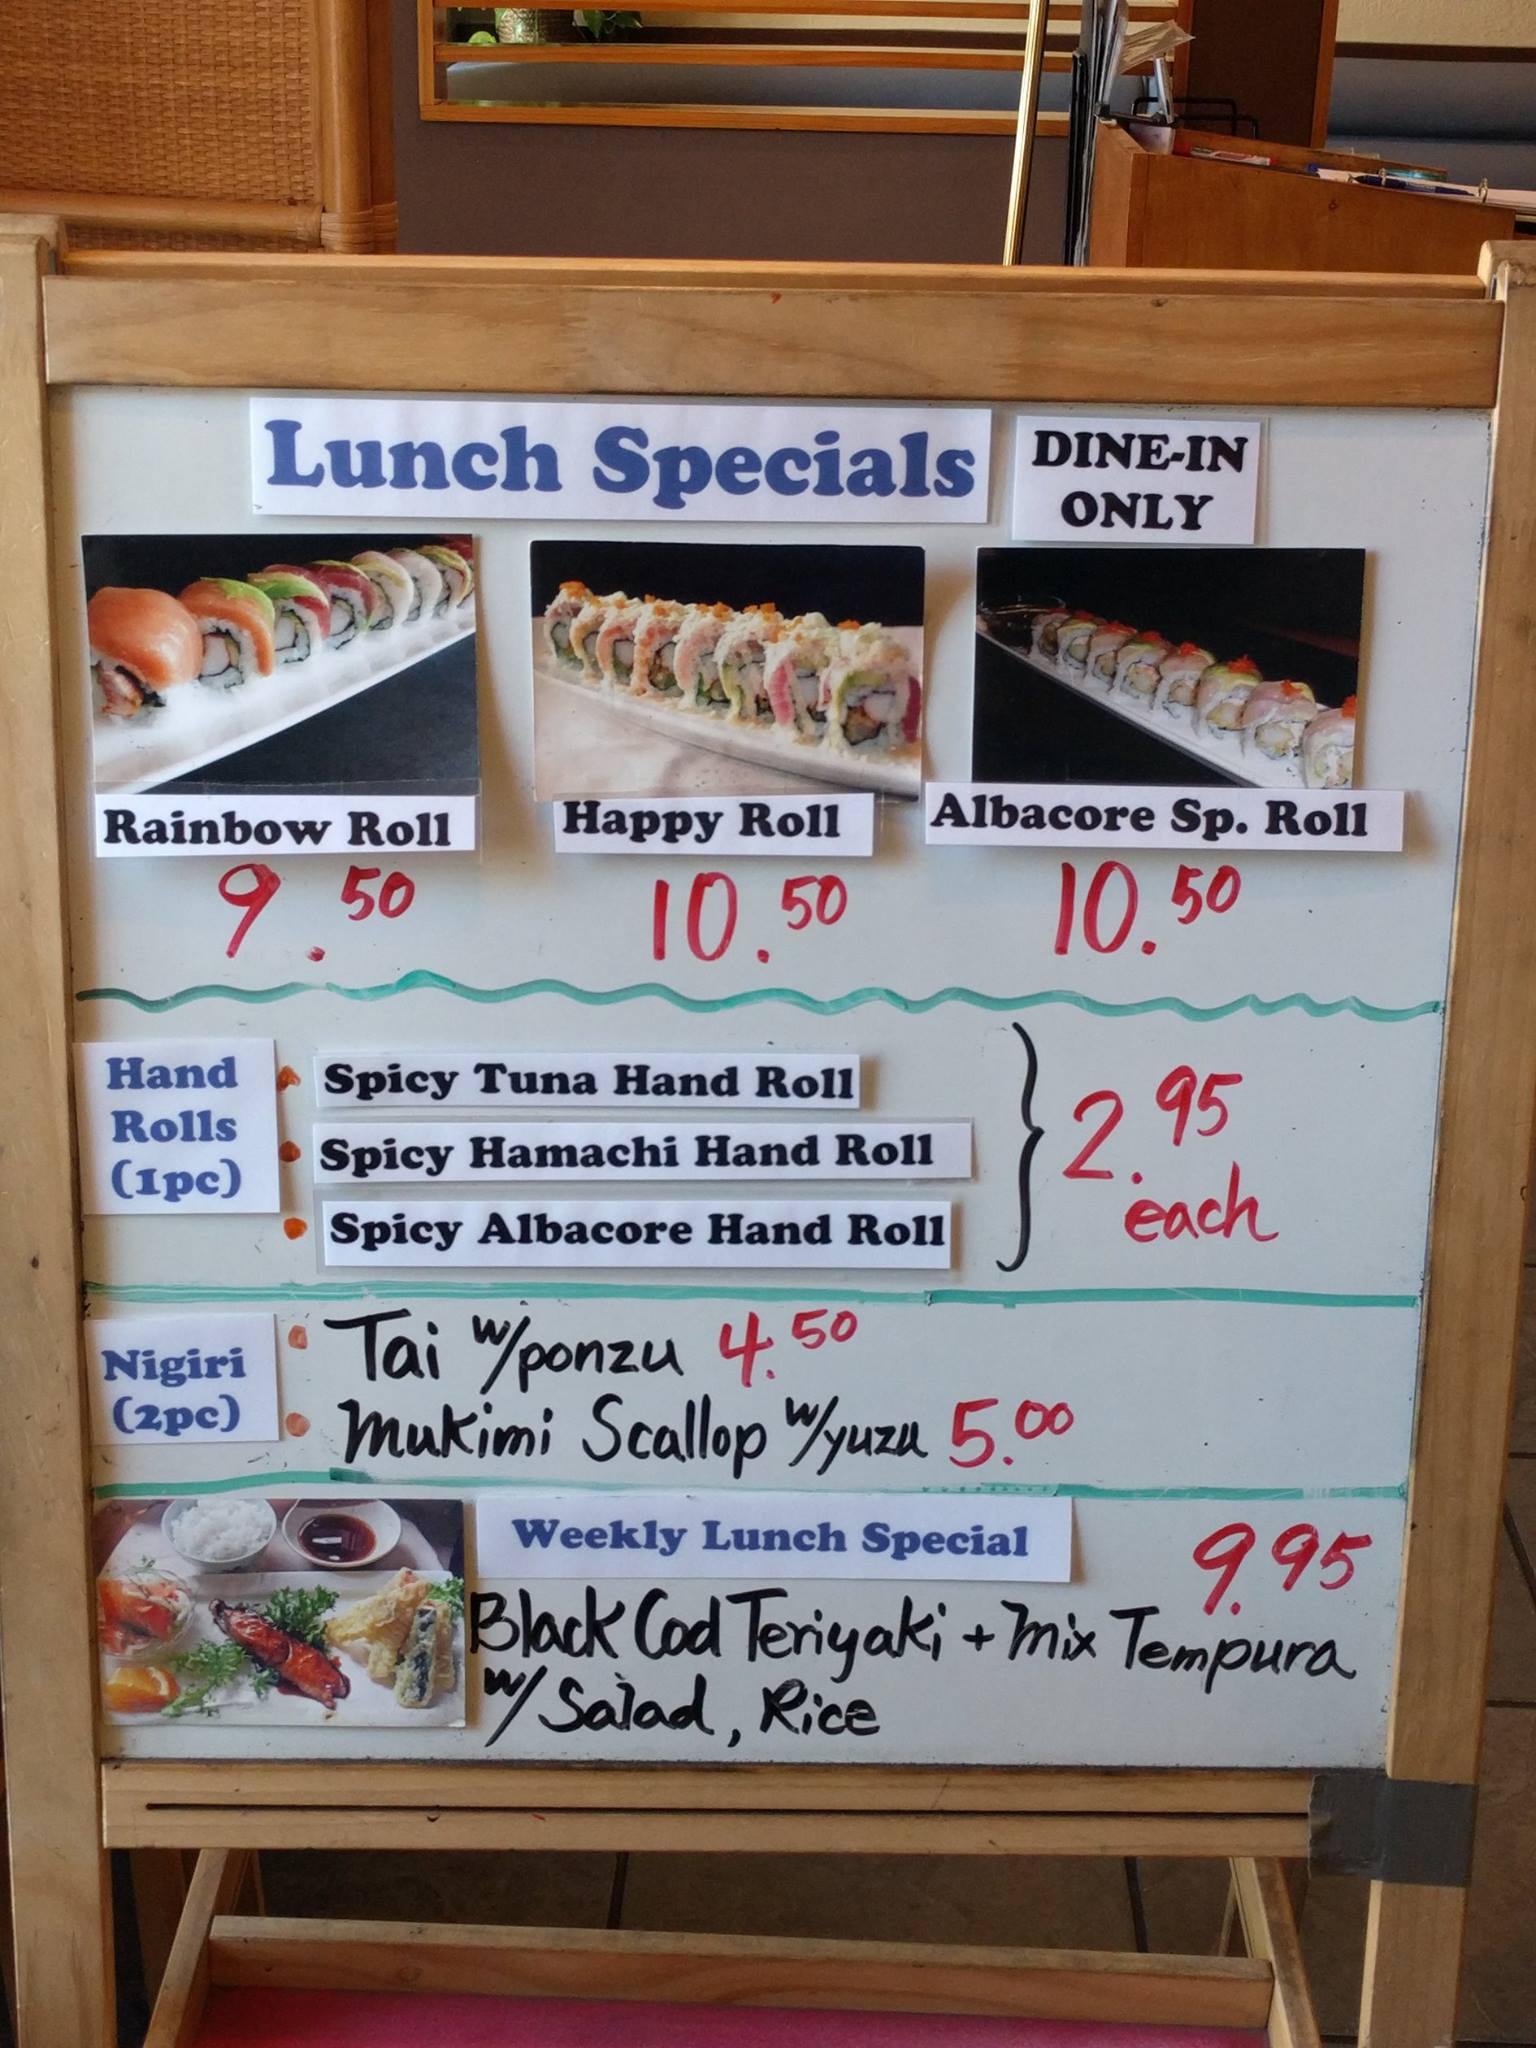 Lunch Specials
DINE-IN
ONLY
Rainbow Roll
Happy Roll
Albacore Sp. Roll
9.50
10.50
10.50
Hand
Rolls
(1pc)
Spicy Tuna Hand Roll
Spicy Hamachi Hand Roll
Spicy Albacore Hand Roll
2.95
each
Nigiri
(2pc)
Tai w/ponzu 4.50
Mukimi Scallop w/yuzu 5.00
Weekly Lunch Special
9.95
Black Cod Teriyaki + Mix Tempura
w/ Salad, Rice